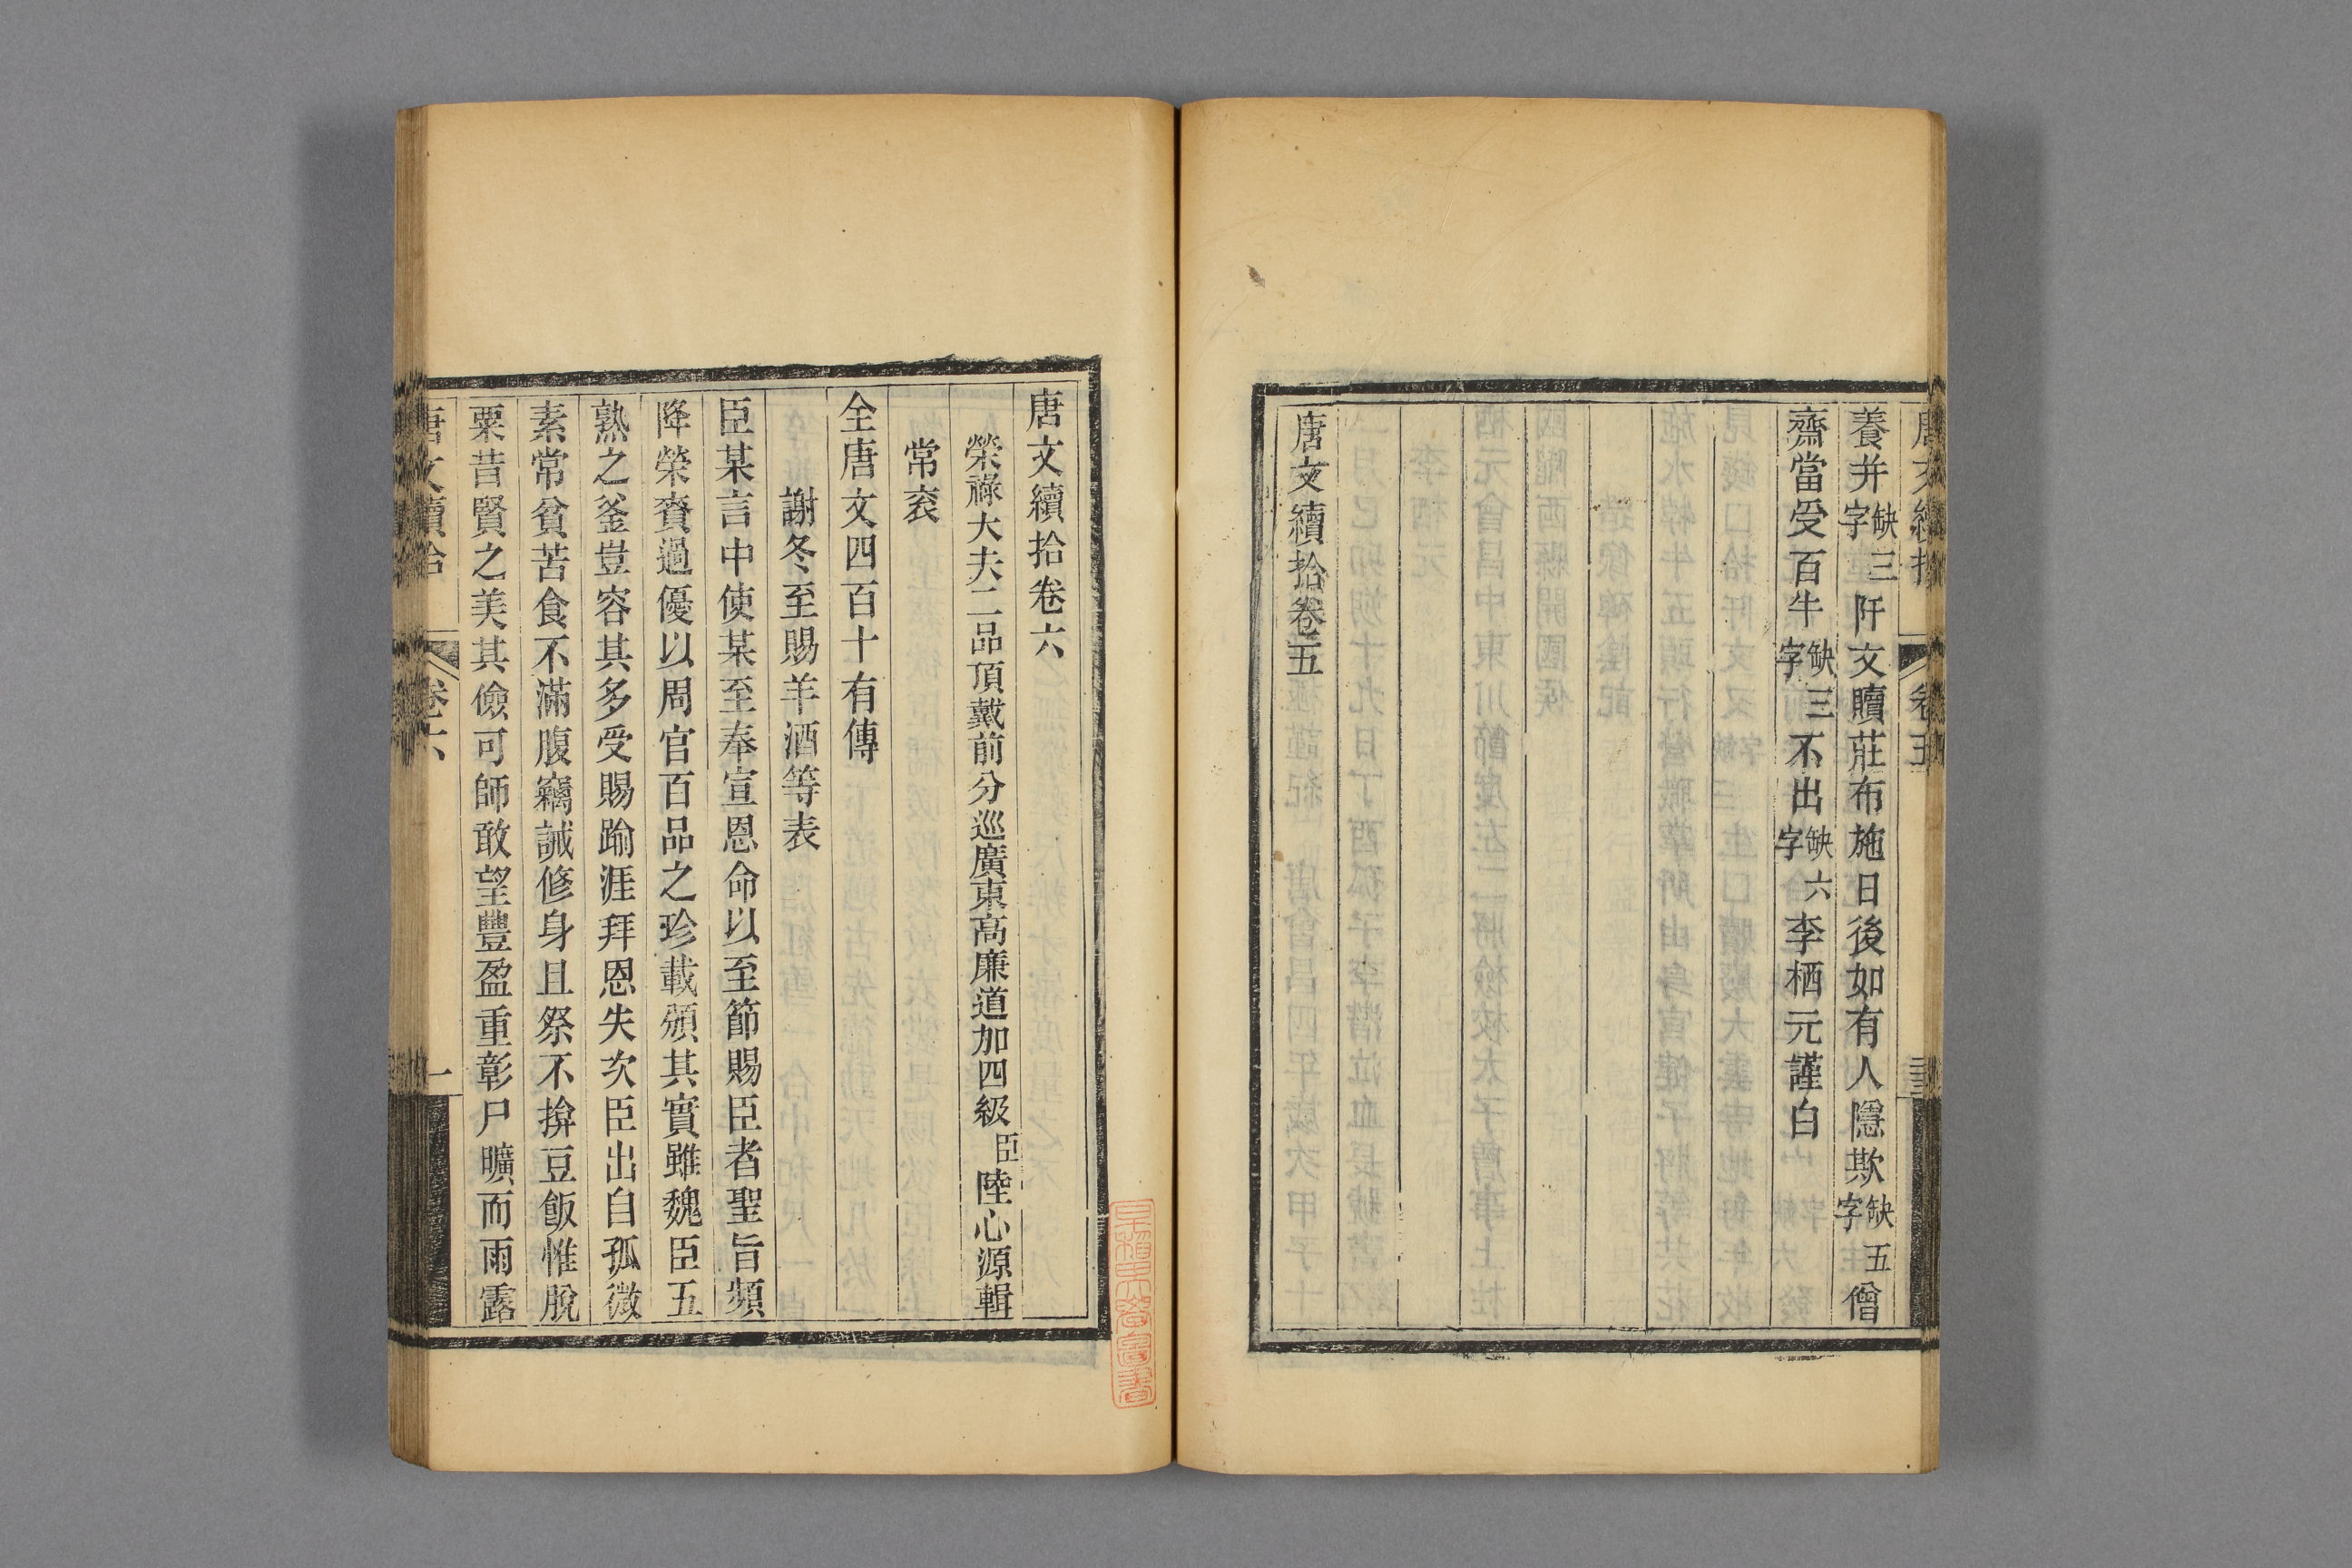 養并缺三字阡文贖莊布施日後如有人隱欺缺五字僧
齋當受百牛缺三字不出缺六字李栖元謹白
唐文續拾卷五
唐文續拾卷六
榮祿大夫二品頂戴前分巡廣東高廉道加四級臣陸心源輯
常袞
全唐文四百十有傳
謝冬至賜羊酒等表
臣某言中使某至奉宣恩命以至節賜臣者聖旨頻
降榮賚過優以周官百品之珍載頒其實雖魏臣五
熟之釜豈容其多受賜踰涯拜恩失次臣出自孤微
素常貧苦食不滿腹竊誡修身且祭不揜豆飯惟脫
粟昔賢之美其儉可師敢望豐盈重彰尸曠而雨露
唐文續拾 卷六 一